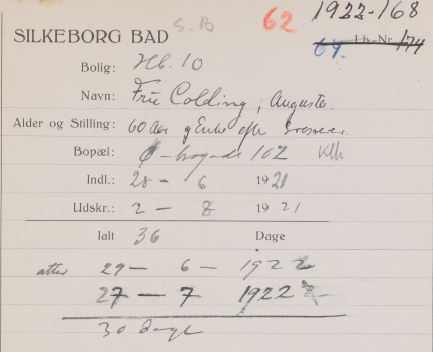 S. B 62 1922-168
SILKEBORG BAD 64. Lb.-Nr. 174
Bolig: Hb. 10
Navn: Frue Colding, Augusta.
Alder og Stilling: 60 Aar g Enke efter
Bopæl: Ø-brogade 102 Kbh
Indl.: 28 - 6 1921
Udskr.: 2 - 8 1921
Ialt 36 Dage
atter 29 - 6 - 1922
27 - 7 1922
30 dage